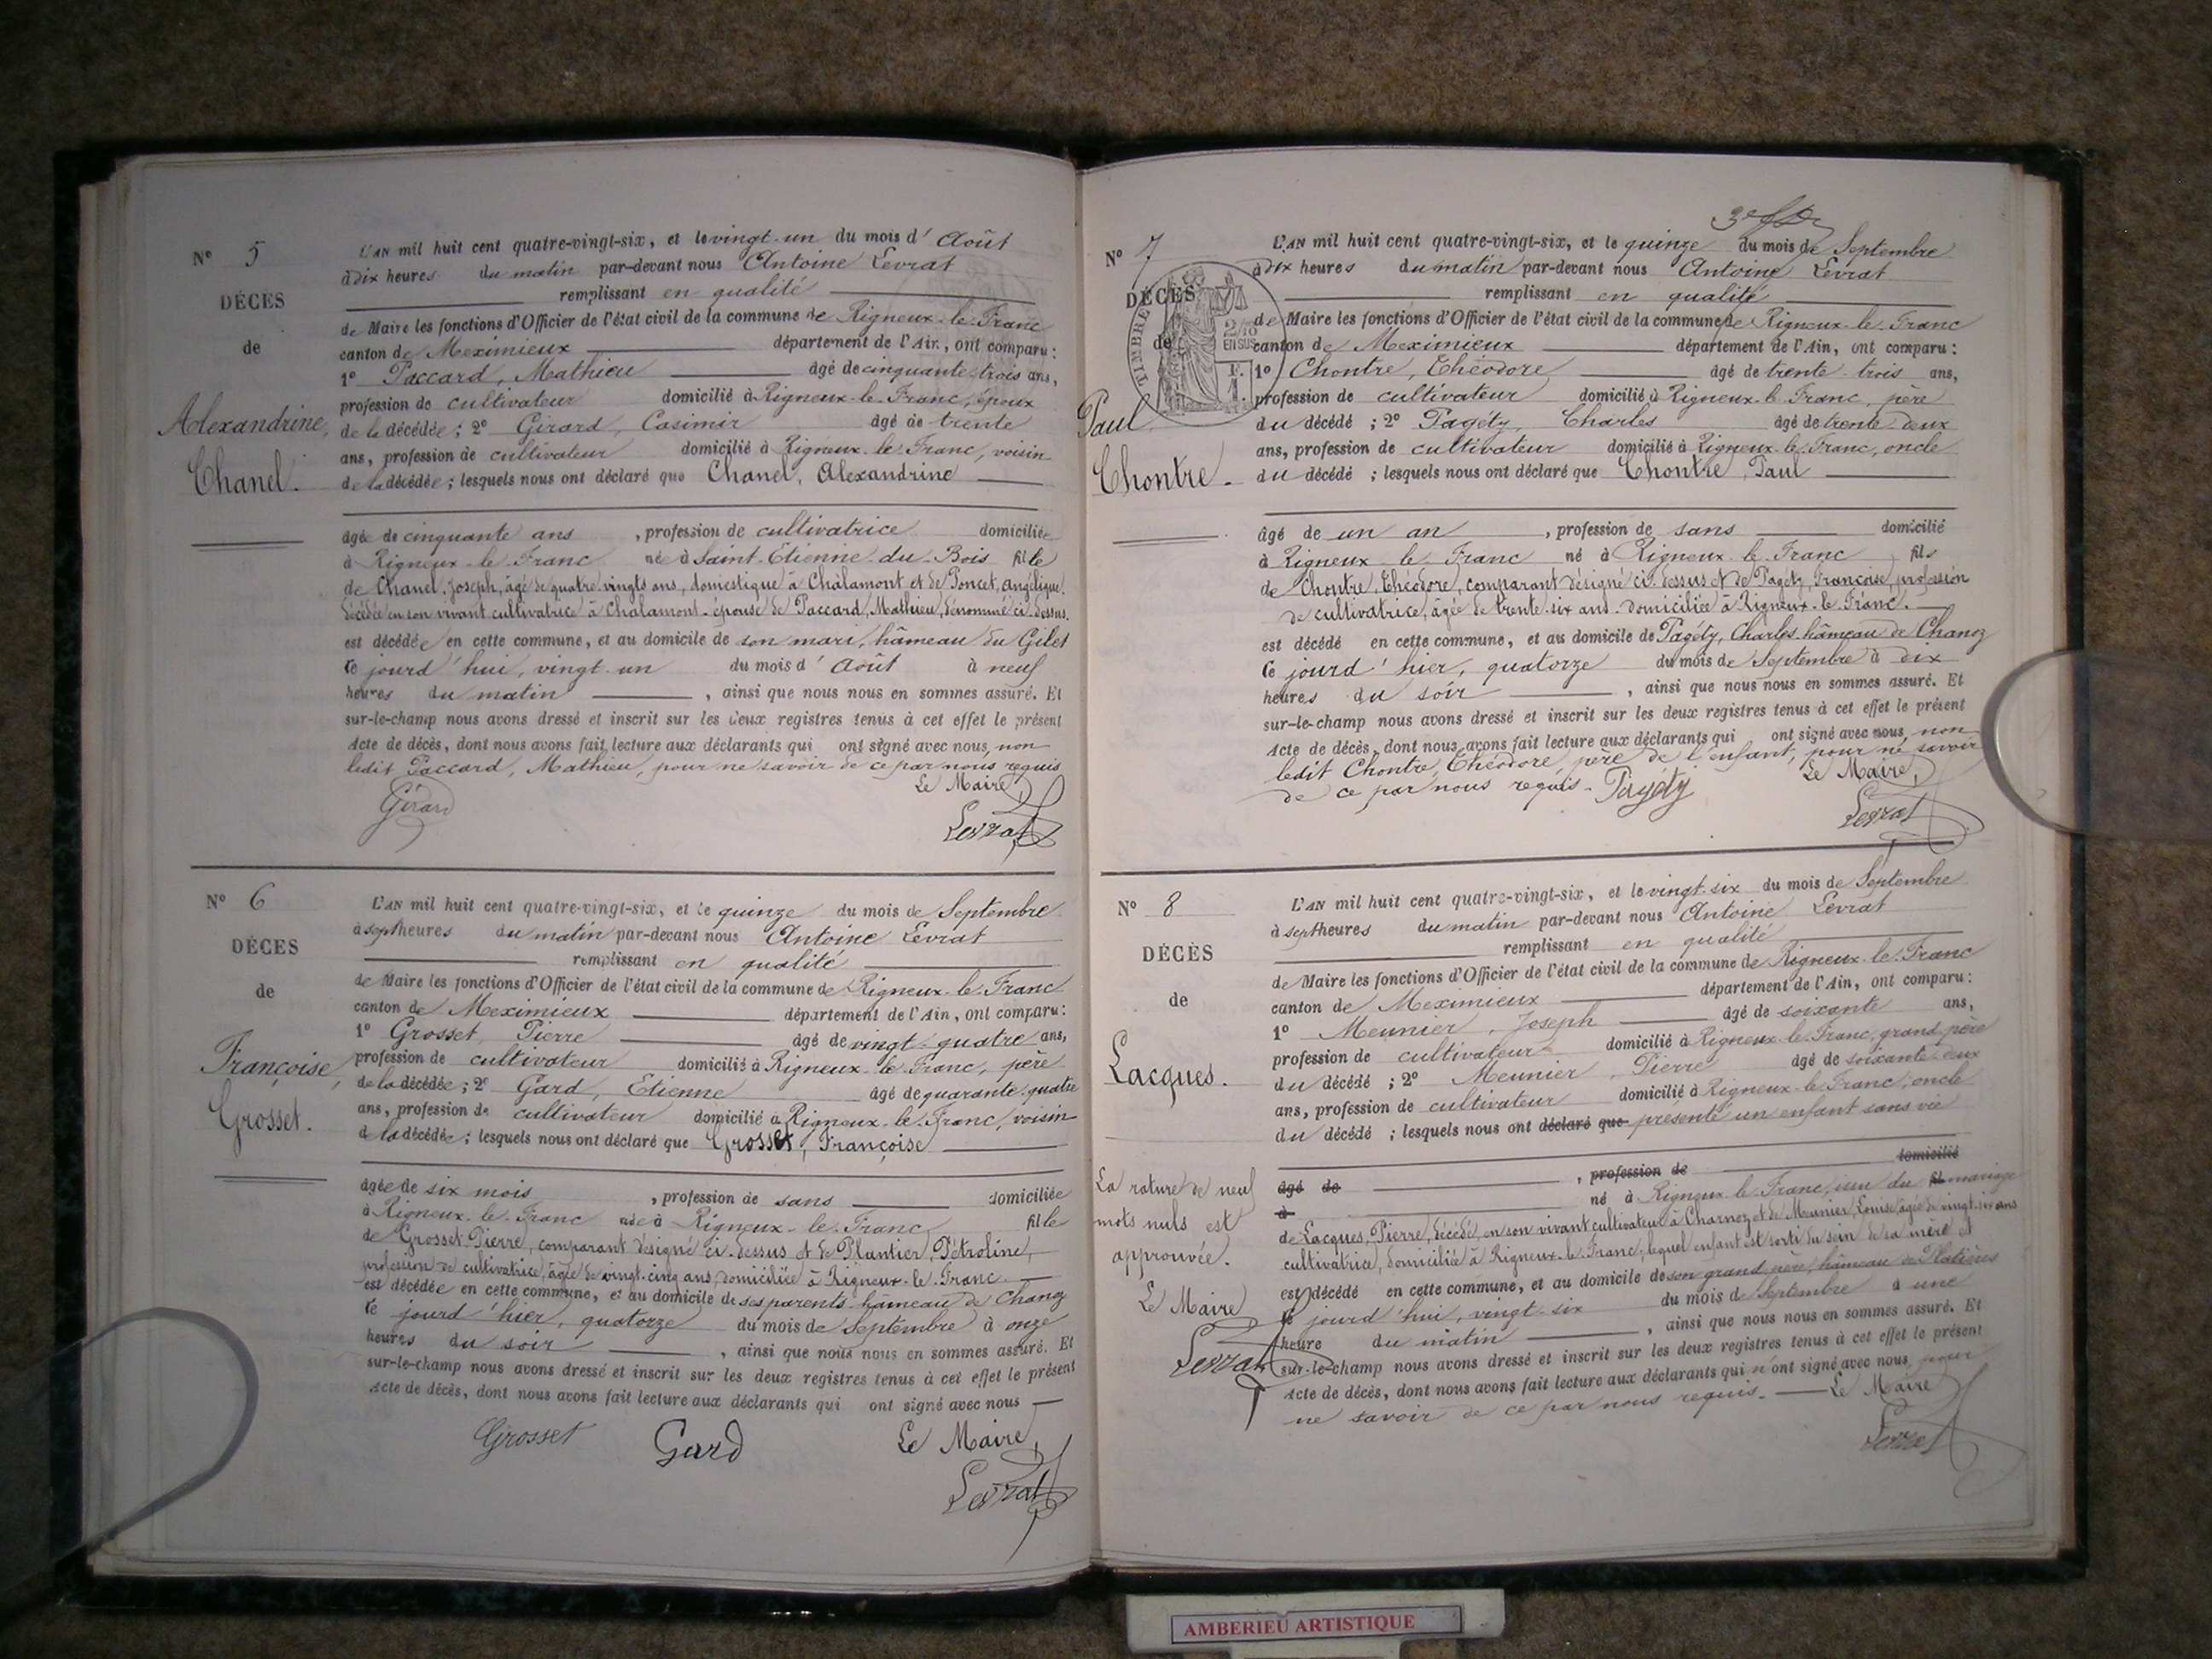 N° 5
DÉCÈS
de
Alexandrine,
Chanel.
L'AN mil huit cent quatre-vingt-six, et le vingt-un du mois d'Août
à dix heures du matin par-devant nous Antoine Levrat
remplissant en qualité
de Maire les fonctions d'Officier de l'état civil de la commune de Rigneux-le-Franc
canton de Meximieux département de l'Ain, ont comparu :
1° Paccard, Mathieu âgé de cinquante-trois ans,
profession de cultivateur domicilié à Rigneux-le-Franc, époux
de la décédée ; 2° Girard, Casimir âgé de trente
ans, profession de cultivateur domicilié à Rigneux-le-Franc, voisin
de la décédée ; lesquels nous ont déclaré que Chanel, Alexandrine
âgée de cinquante ans, profession de cultivatrice domiciliée
à Rigneux-le-Franc née à Saint-Etienne-du-Bois fille
de Chanel, Joseph, âgé de quatre-vingts ans, domestique à Châlamont et de Poncet, Angélique
décédée en son vivant cultivatrice à Châlamont. épouse de Paccard, Mathieu, dénommé ci-dessus.
est décédée en cette commune, et au domicile de son mari, hâmeau du Gilet
ce jourd'hui, vingt-un du mois d'Août à neuf
heures du matin, ainsi que nous nous en sommes assuré. Et
sur-le-champ nous avons dressé et inscrit sur les deux registres tenus à cet effet le présent
Acte de décès, dont nous avons fait lecture aux déclarants qui ont signé avec nous, non
ledit Paccard, Mathieu, pour ne savoir de ce par nous requis
Le Maire,
Girard
Levrat
N° 6
DÉCÈS
de
Françoise,
Grosset.
L'AN mil huit cent quatre-vingt-six, et le quinze du mois de Septembre
à sept heures du matin par-devant nous Antoine Levrat
remplissant en qualité
de Maire les fonctions d'Officier de l'état civil de la commune de Rigneux-le-Franc
canton de Meximieux département de l'Ain, ont comparu :
1° Grosset, Pierre âgé de vingt-quatre ans,
profession de cultivateur domicilié à Rigneux-le-Franc, père
de la décédée ; 2° Gard, Etienne âgé de quarante-quatre
ans, profession de cultivateur domicilié à Rigneux-le-Franc, voisin
de la décédée ; lesquels nous ont déclaré que Grosset, Françoise
âgée de six mois, profession de sans domiciliée
à Rigneux-le-Franc née à Rigneux-le-Franc fille
de Grosset Pierre, comparant désigné ci-dessus et de Plantier, Pétroline,
profession de cultivatrice, âgée de vingt-cinq ans, domiciliée à Rigneux-le-Franc.
est décédée en cette commune, et au domicile de ses parents hâmeau de Chanoz
ce jourd'hier, quatorze du mois de Septembre à onze
heures du soir, ainsi que nous nous en sommes assuré. Et
sur-le-champ nous avons dressé et inscrit sur les deux registres tenus à cet effet le présent
Acte de décès, dont nous avons fait lecture aux déclarants qui ont signé avec nous
Grosset Gard Le Maire,
Levrat
N° 7
DÉCÈS
de
TIMBRE
2/10
EN SUS
1 F.
Paul
Chontre.
L'AN mil huit cent quatre-vingt-six, et le quinze du mois de Septembre
à dix heures du matin par-devant nous Antoine Levrat
remplissant en qualité
de Maire les fonctions d'Officier de l'état civil de la commune de Rigneux-le-Franc
canton de Meximieux département de l'Ain, ont comparu :
1° Chontre, Théodore âgé de trente-trois ans,
profession de cultivateur domicilié à Rigneux-le-Franc, père
du décédé ; 2° Pagéty, Charles âgé de trente-deux
ans, profession de cultivateur domicilié à Rigneux-le-Franc, oncle
du décédé ; lesquels nous ont déclaré que Chontre, Paul
âgé de un an, profession de sans domicilié
à Rigneux-le-Franc né à Rigneux-le-Franc fils
de Chontre, Théodore, comparant désigné ci-dessus et de Pagéty, Françoise, profession
de cultivatrice, âgée de trente-six ans. domiciliée à Rigneux-le-Franc.
est décédé en cette commune, et au domicile de Pagéty, Charles hâmeau de Chanoz
ce jourd'hier, quatorze du mois de Septembre à dix
heures du soir, ainsi que nous nous en sommes assuré. Et
sur-le-champ nous avons dressé et inscrit sur les deux registres tenus à cet effet le présent
Acte de décès, dont nous avons fait lecture aux déclarants qui ont signé avec nous, non
ledit Chontre, Théodore, père de l'enfant, pour ne savoir
de ce par nous requis. Pagéty Le Maire,
Levrat
N° 8
DÉCÈS
de
Lacques.
La rature de neuf
mots nuls est
approuvée.
Le Maire
Levrat
L'AN mil huit cent quatre-vingt-six, et le vingt-six du mois de Septembre
à sept heures du matin par-devant nous Antoine Levrat
remplissant en qualité
de Maire les fonctions d'Officier de l'état civil de la commune de Rigneux-le-Franc
canton de Meximieux département de l'Ain, ont comparu :
1° Meunier, Joseph âgé de soixante ans,
profession de cultivateur domicilié à Rigneux-le-Franc, grand-père
du décédé ; 2° Meunier, Pierre âgé de soixante-deux
ans, profession de cultivateur domicilié à Rigneux-le-Franc, oncle
du décédé ; lesquels nous ont déclaré que présenté un enfant sans vie
âgé de, profession de domicilié
à né à Rigneux-le-Franc, issu du fil mariage
de Lacques, Pierre, décédé, en son vivant cultivateur à Charnoz et de Meunier, Louise âgée de vingt-six ans
cultivatrice, domiciliée à Rigneux-le-Franc, lequel enfant est sorti du sein de sa mère et
est décédé en cette commune, et au domicile de son grand-père, hâmeau de Platières
ce jourd'hui, vingt-six du mois de Septembre à une
heure du matin, ainsi que nous nous en sommes assuré. Et
sur-le-champ nous avons dressé et inscrit sur les deux registres tenus à cet effet le présent
Acte de décès, dont nous avons fait lecture aux déclarants qui n'ont signé avec nous, pour
ne savoir de ce par nous requis. Le Maire
Levrat
AMBERIEU ARTISTIQUE